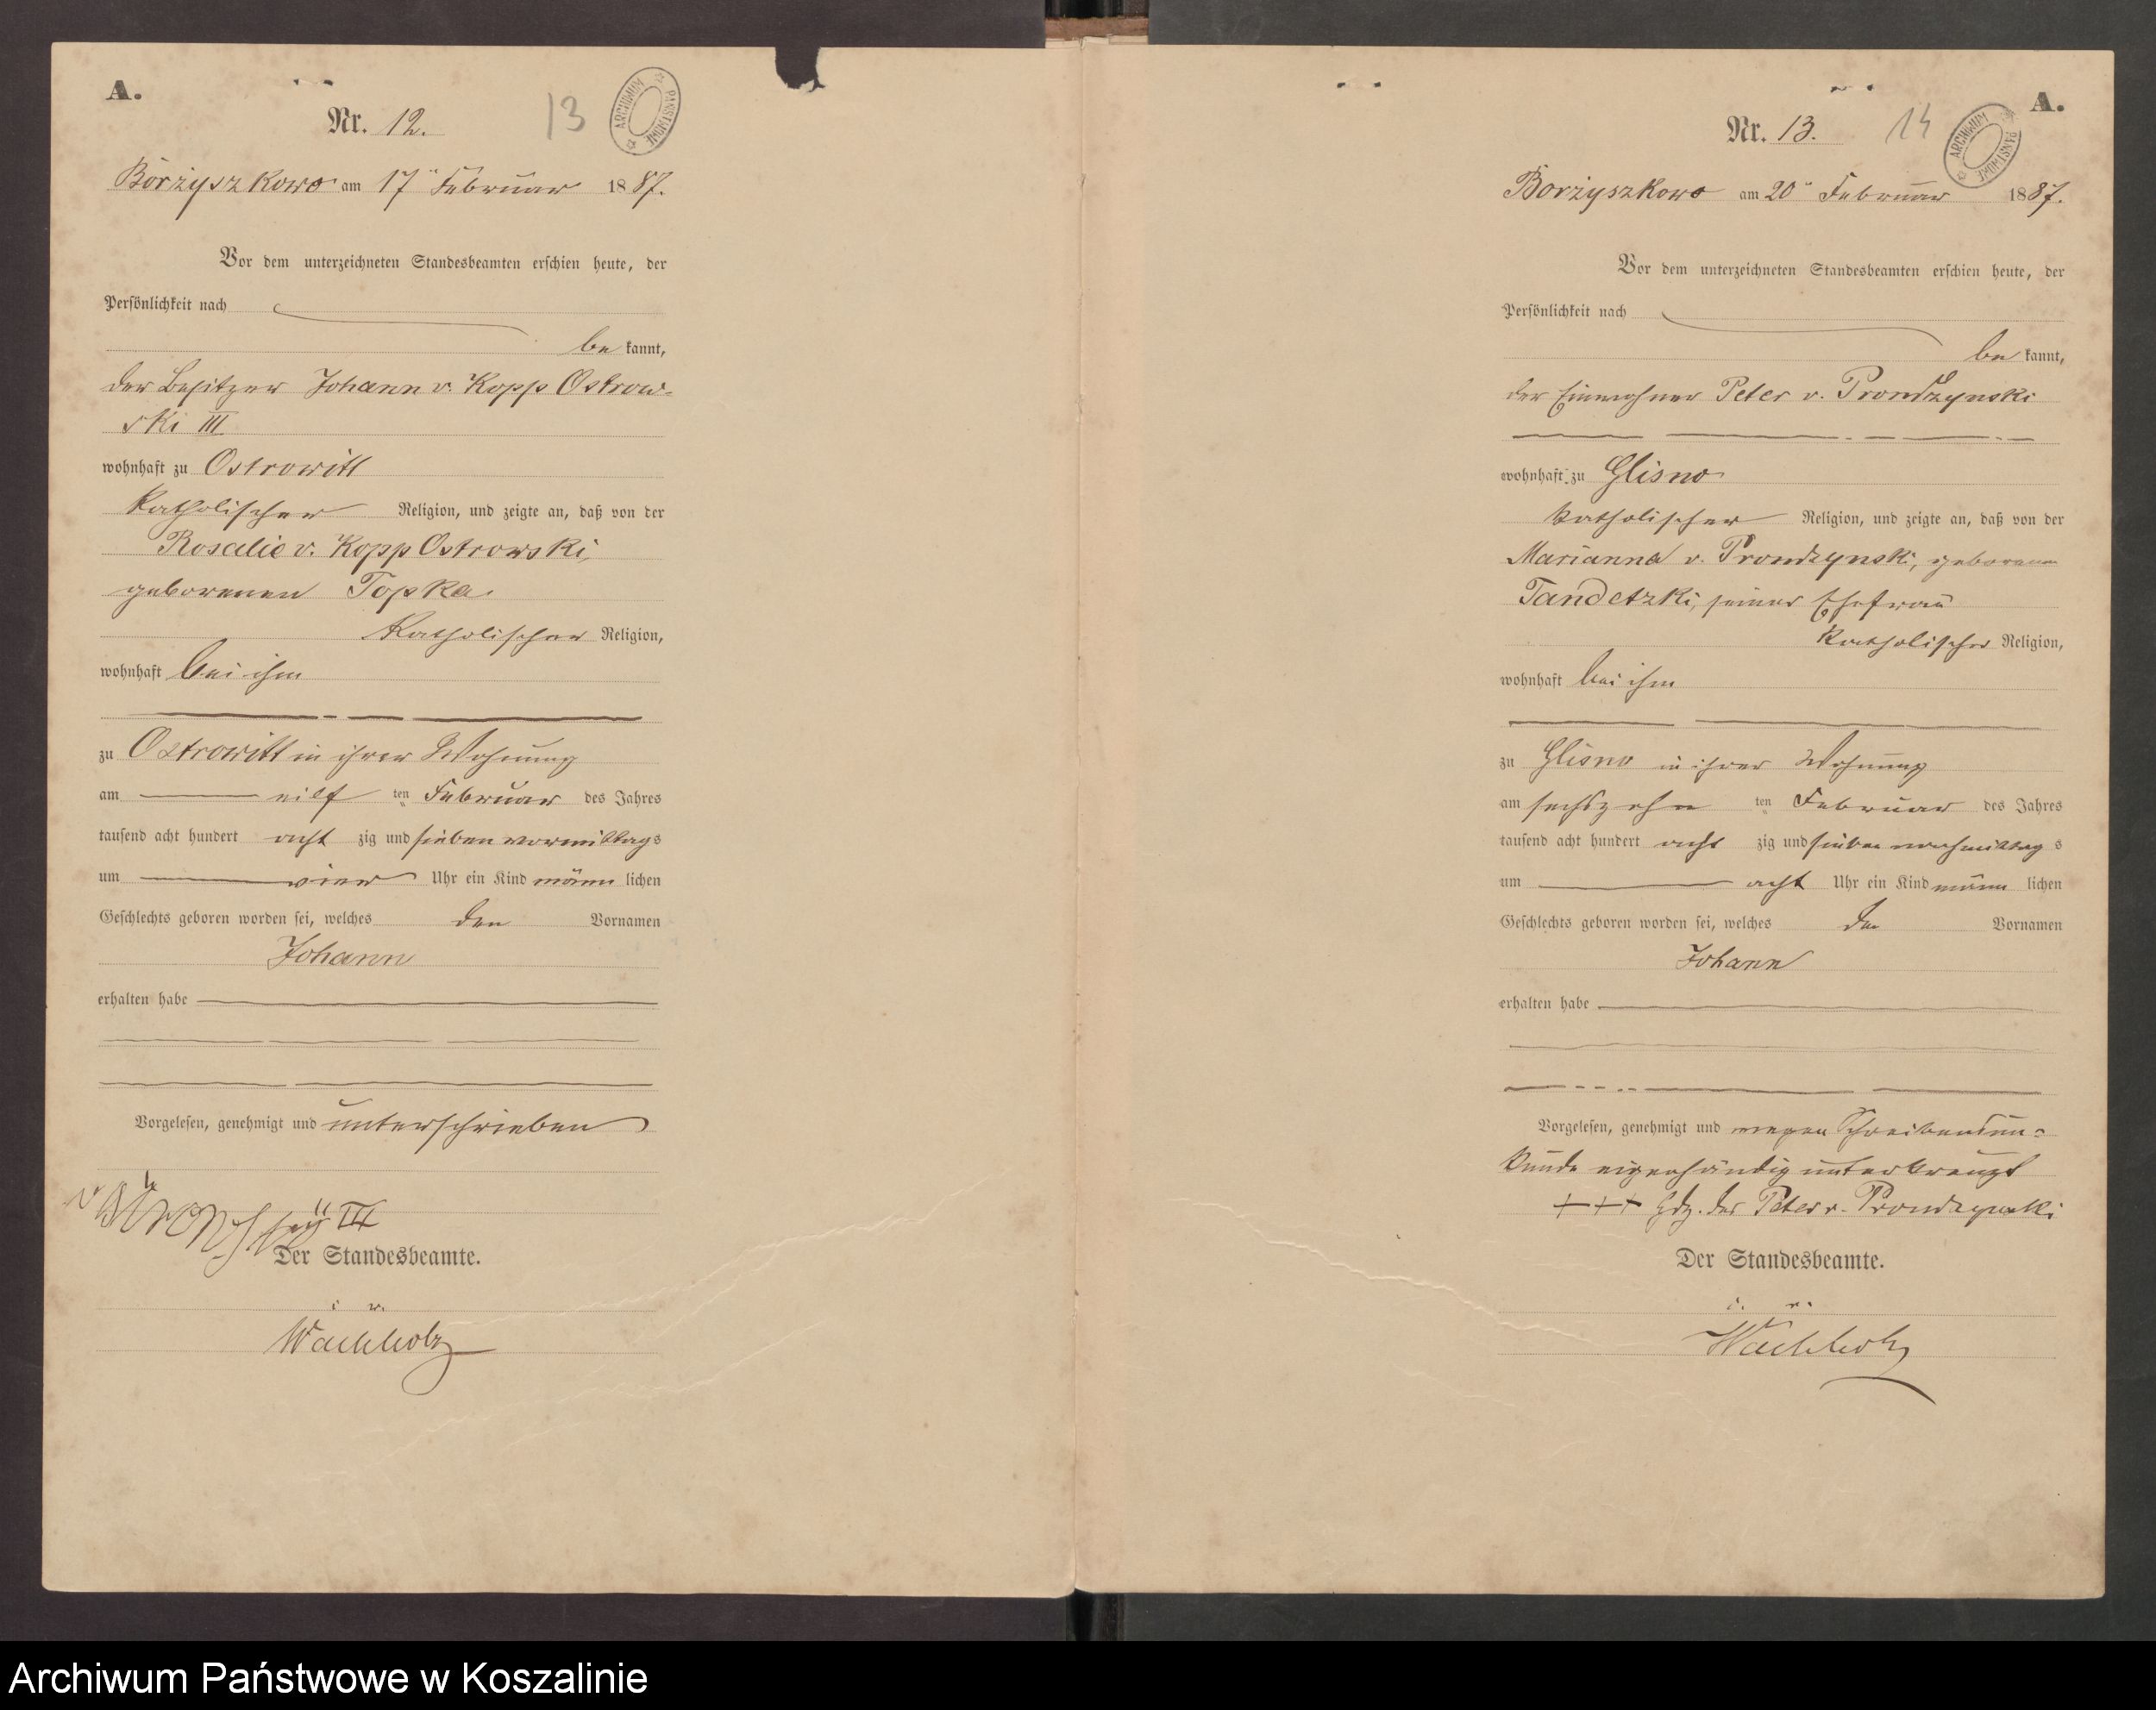 A.
Nr. 12.
13
ARCHIWUM PAŃSTWOWE
Borzyszkowo am 17ten Februar 1887.
Vor dem unterzeichneten Standesbeamten erschien heute, der
Persönlichkeit nach
be kannt,
der Besitzer Johann v. Kopp Ostrow-
ski III
wohnhaft zu Ostrowitt
katholischer Religion, und zeigte an, daß von der
Rosalie v. Kopp Ostrowski,
geborenen Topka
katholischer Religion,
wohnhaft bei ihm
zu Ostrowitt in ihrer Wohnung
am eilf ten Februar des Jahres
tausend acht hundert acht zig und sieben vormittags
um vier Uhr ein Kind männ lichen
Geschlechts geboren worden sei, welches den Vornamen
Johann
erhalten habe
Vorgelesen, genehmigt und unterschrieben
III
Der Standesbeamte.
i. v.
Wachholz
A.
Nr. 13.
14
ARCHIWUM PAŃSTWOWE
Borzyszkowo am 20ten Februar 1887.
Vor dem unterzeichneten Standesbeamten erschien heute, der
Persönlichkeit nach
be kannt,
der Einwohner Peter v. Prondzynski
wohnhaft zu Glisno
katholischer Religion, und zeigte an, daß von der
Marianna v. Prondzynski, geborenen
Tandetzki, seiner Ehefrau
katholischer Religion,
wohnhaft bei ihm
zu Glisno in ihrer Wohnung
am sechszehn ten Februar des Jahres
tausend acht hundert acht zig und sieben nachmittag s
um acht Uhr ein Kind männ lichen
Geschlechts geboren worden sei, welches den Vornamen
Johann
erhalten habe
Vorgelesen, genehmigt und wegen Schreibensun-
kunde eigenhändig unterkreuzt
+++ Hdz. des Peter v. Prondzynski
Der Standesbeamte.
i. v.
Wachholz
Archiwum Państwowe w Koszalinie